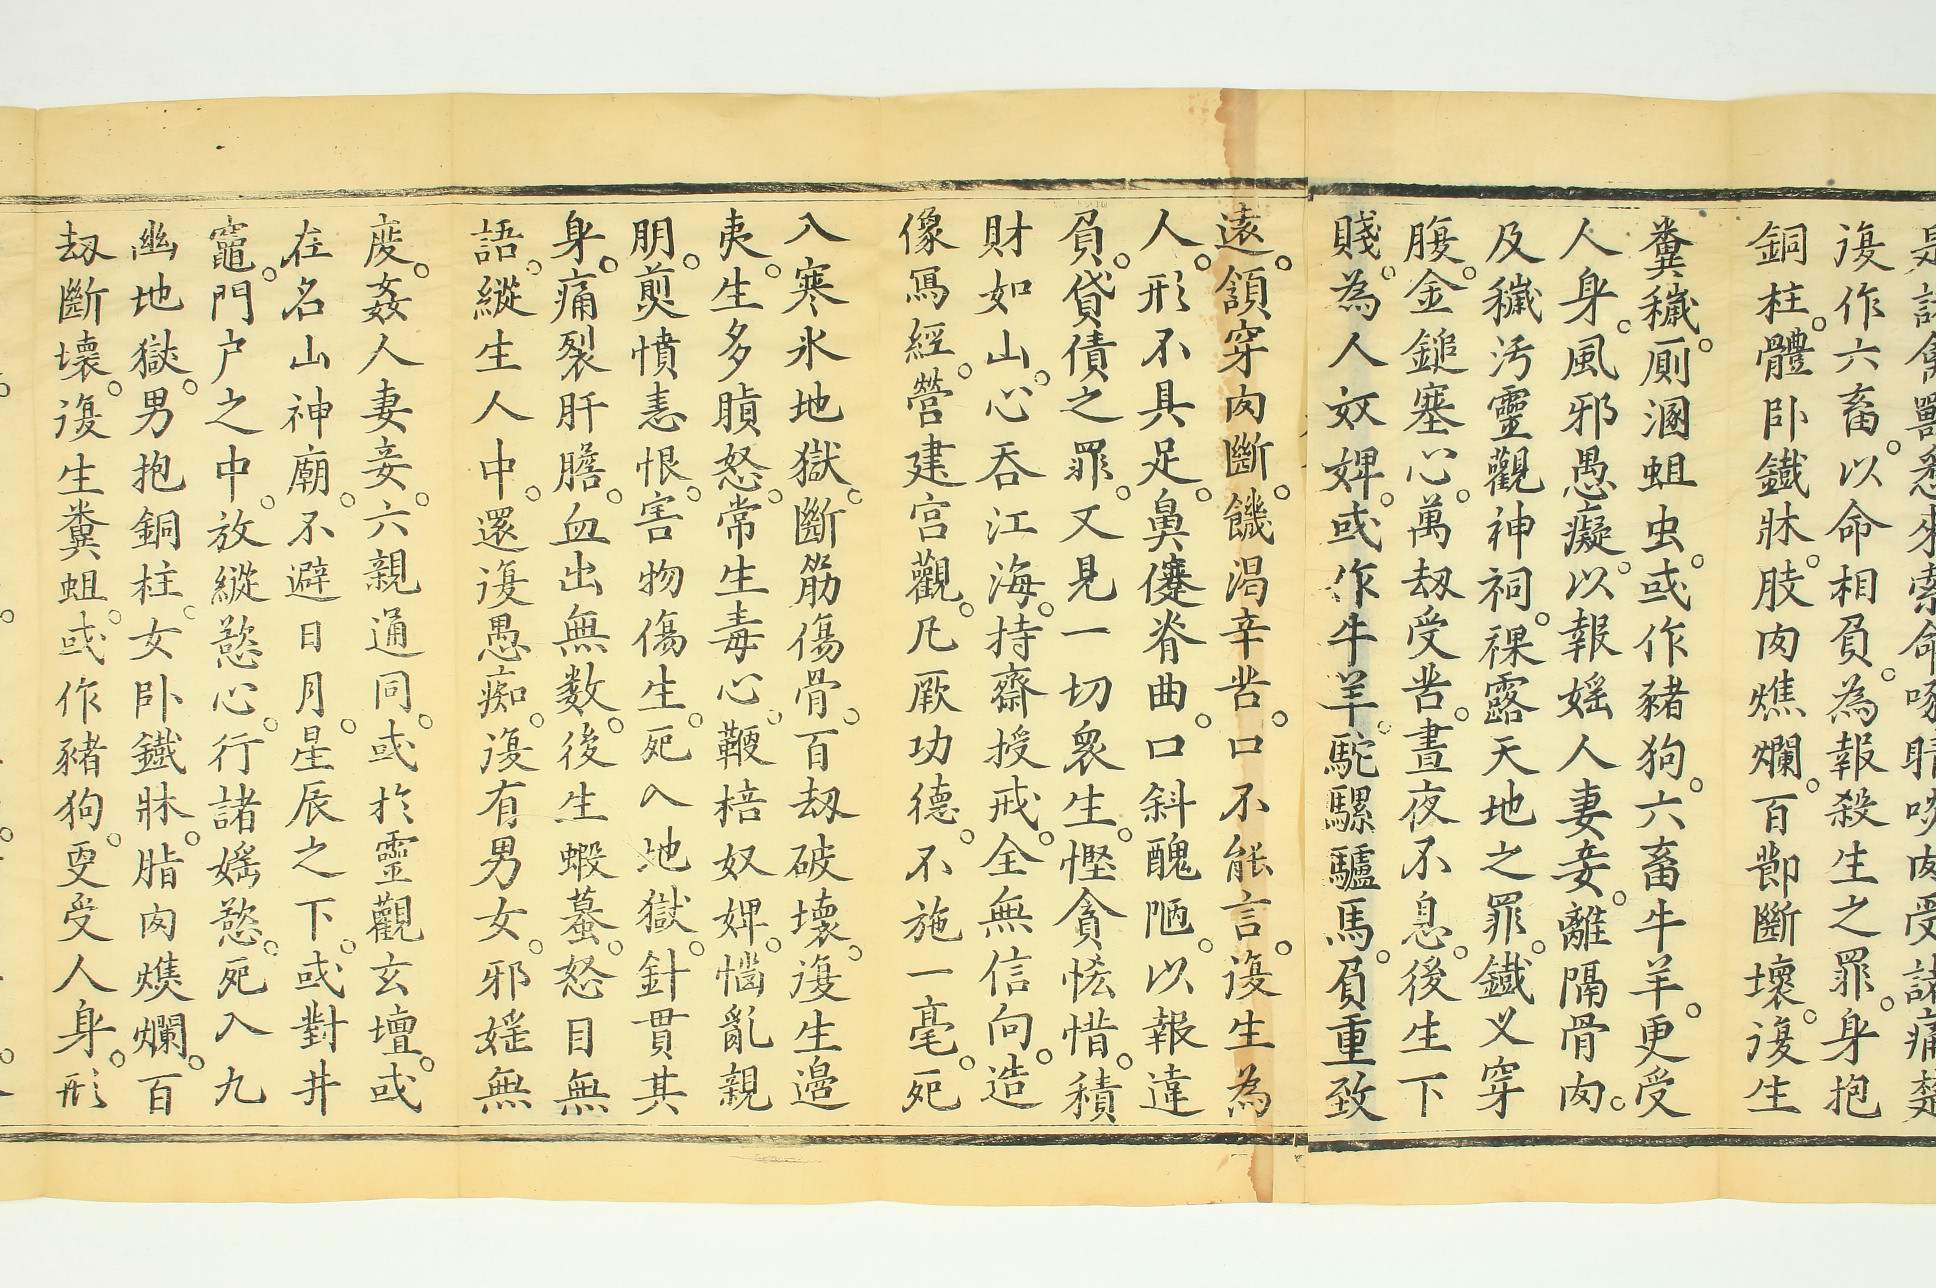 是諸禽獸悉來索命啄睛啖肉受諸痛楚
復作六畜。以命相負。為報殺生之罪。身抱
銅柱。體卧鐵牀。肢肉燋爛。百節斷壞。復生
糞穢。廁溷蛆虫。或作豬狗。六畜牛羊。更受
人身。風邪愚癡。以報婬人妻妾。離隔骨肉。
及穢污靈觀神祠。裸露天地之罪。鐵义穿
腹。金鎚塞心。萬刼受苦。晝夜不息。後生下
賤。為人奴婢。或作牛羊。駝騾驢馬。負重致
遠。頷穿肉斷。饑渴辛苦。口不能言。復生為
人。形不具足。鼻僂脊曲。口斜醜陋。以報違
負。貸債之罪。又見一切衆生。慳貪恡惜。積
財如山。心吞江海。持齋授戒。全無信向。造
像寫經。營建宮觀。凡厥功德。不施一毫。死
入寒氷地獄。斷筋傷骨。百刼破壞。復生邉
夷。生多䐜怒。常生毒心。鞭棓奴婢。惱亂親
朋。剪憤恚恨。害物傷生。死入地獄。針貫其
身。痛裂肝膽。血出無数。後生蝦蟇。怒目無
語。縱生人中。還復愚痴。復有男女。邪婬無
度。姦人妻妾。六親通同。或於靈觀玄壇。或
在名山神廟。不避日月。星辰之下。或對井
竈。門户之中。放縱慾心。行諸婬慾。死入九
幽地獄。男抱銅柱。女卧鐵牀。脂肉燋爛。百
刼斷壞。復生糞蛆。或作豬狗。更受人身。形